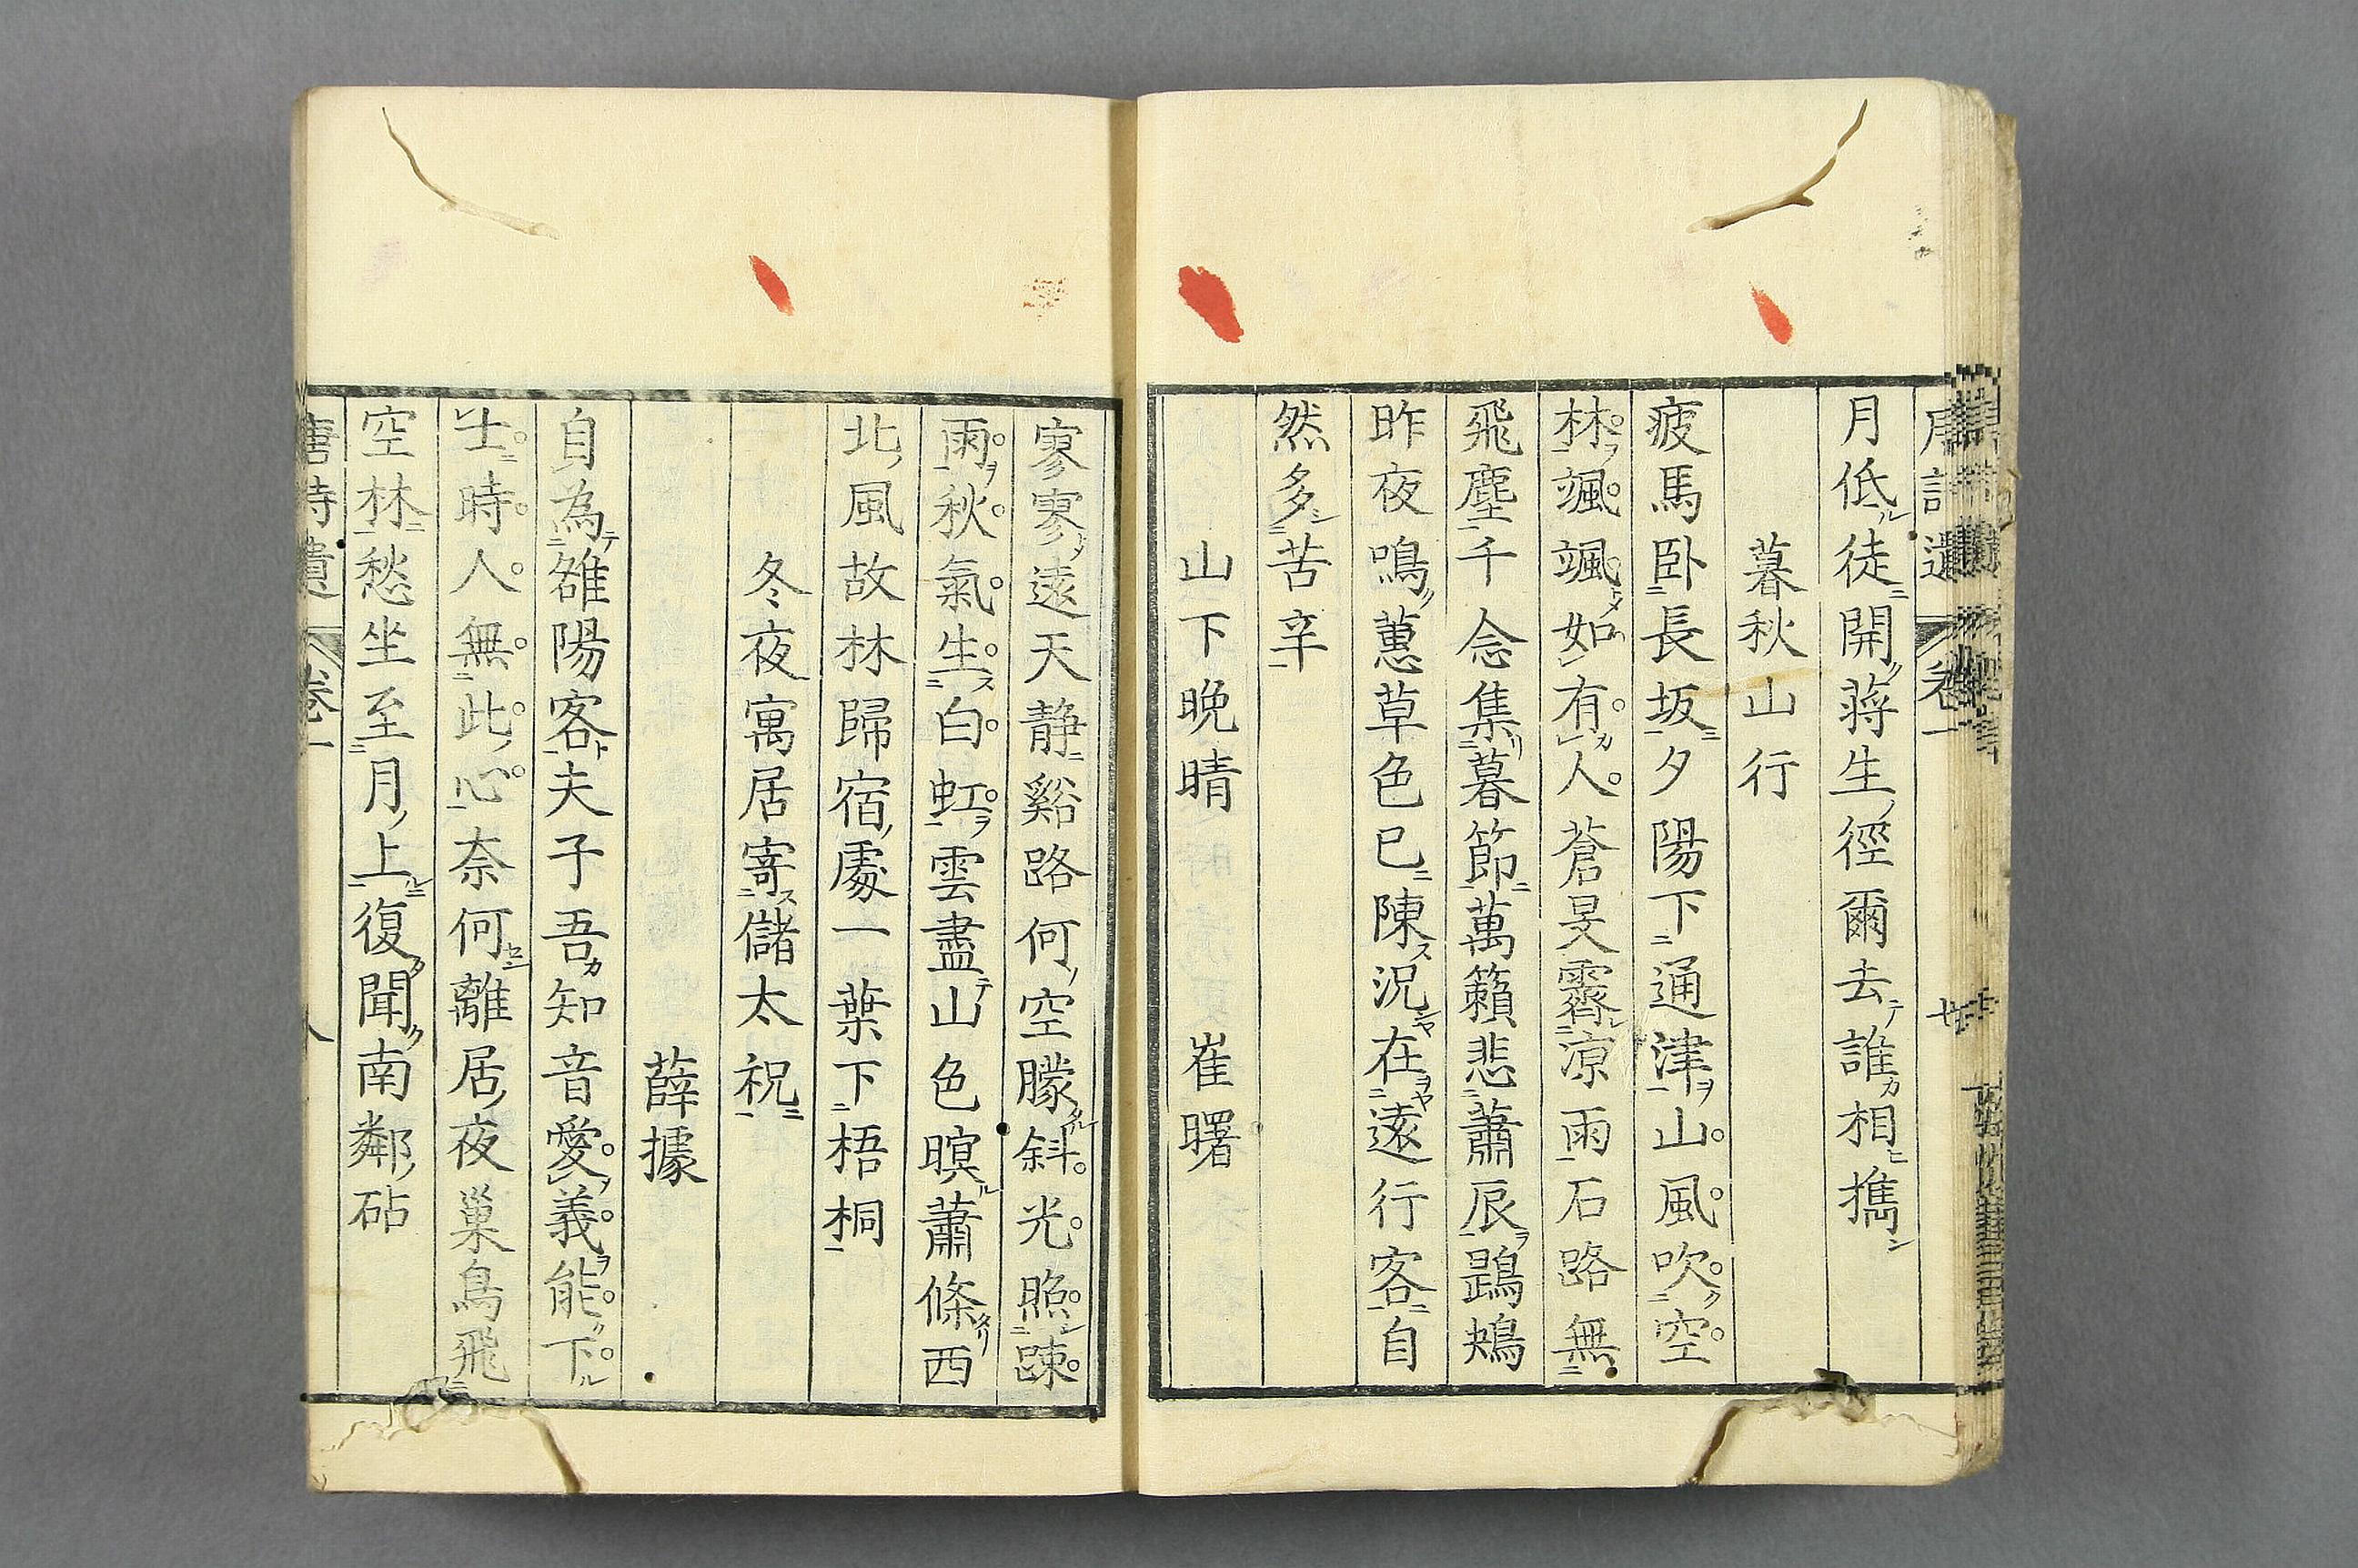 月低徒開蔣生徑爾去誰相攜
暮秋山行
疲馬卧長坂夕陽下通津山風吹空
林颯颯如有人蒼旻霽涼雨石路無
飛塵千念集暮節萬籟悲蕭辰鶗鴂
昨夜鳴蕙草色已陳況在遠行客自
然多苦辛
山下晚晴 崔曙
寥寥遠天静谿路何空朦斜光照踈
雨秋氣生白虹雲盡山色暝蕭條西
北風故林歸宿處一葉下梧桐
冬夜寓居寄儲太祝
薛據
自為雒陽客夫子吾知音愛義能下
士時人無此心奈何離居夜巢鳥飛
空林愁坐至月上復聞南鄰砧
唐詩遺 卷一